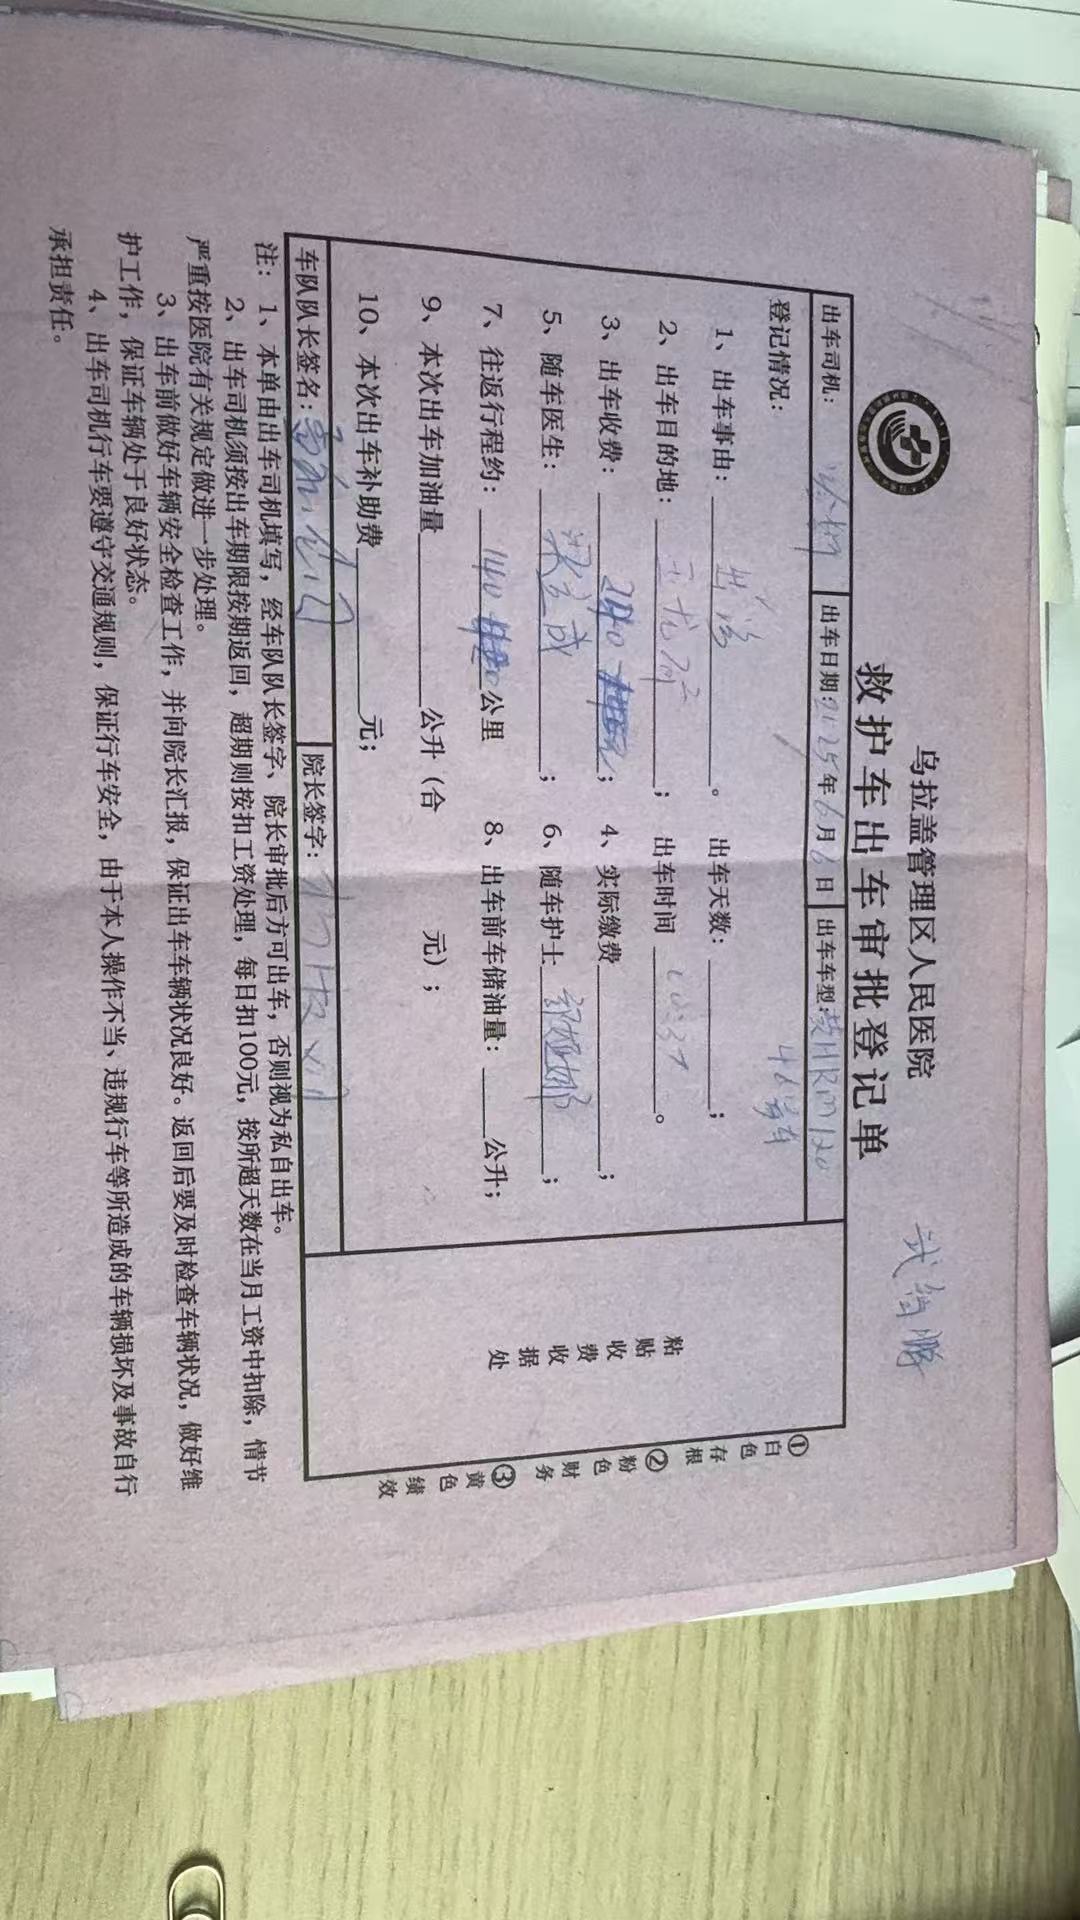 乌拉盖管理区人民医院
救护车出车审批登记单
出车司机： 出车日期：2025年6月6日 出车车型：蒙HRM120
登记情况：
1、出车事由： 。 出车天数： ；
2、出车目的地： ； 出车时间 。
3、出车收费：240 ； 4、实际缴费 ；
5、随车医生： ； 6、随车护士 ；
7、往返行程约：140 公里 8、出车前车储油量： 公升；
9、本次出车加油量 公升（合 元）；
10、本次出车补助费 元；
车队队长签名： 院长签字：
粘贴收费收据处
①白色存根 ②粉色财务 ③黄色绩效
注：1、本单由出车司机填写，经车队队长签字、院长审批后方可出车，否则视为私自出车。
2、出车司机须按出车期限按期返回，超期则按扣工资处理，每日扣100元，按所超天数在当月工资中扣除，情节
严重按医院有关规定做进一步处理。
3、出车前做好车辆安全检查工作，并向院长汇报，保证出车车辆状况良好。返回后要及时检查车辆状况，做好维
护工作，保证车辆处于良好状态。
4、出车司机行车要遵守交通规则，保证行车安全，由于本人操作不当、违规行车等所造成的车辆损坏及事故自行
承担责任。